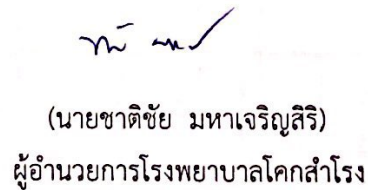 (นายชาติชัย มหาเจริญสิริ)
ผู้อำนวยการโรงพยาบาลโคกสำโรง